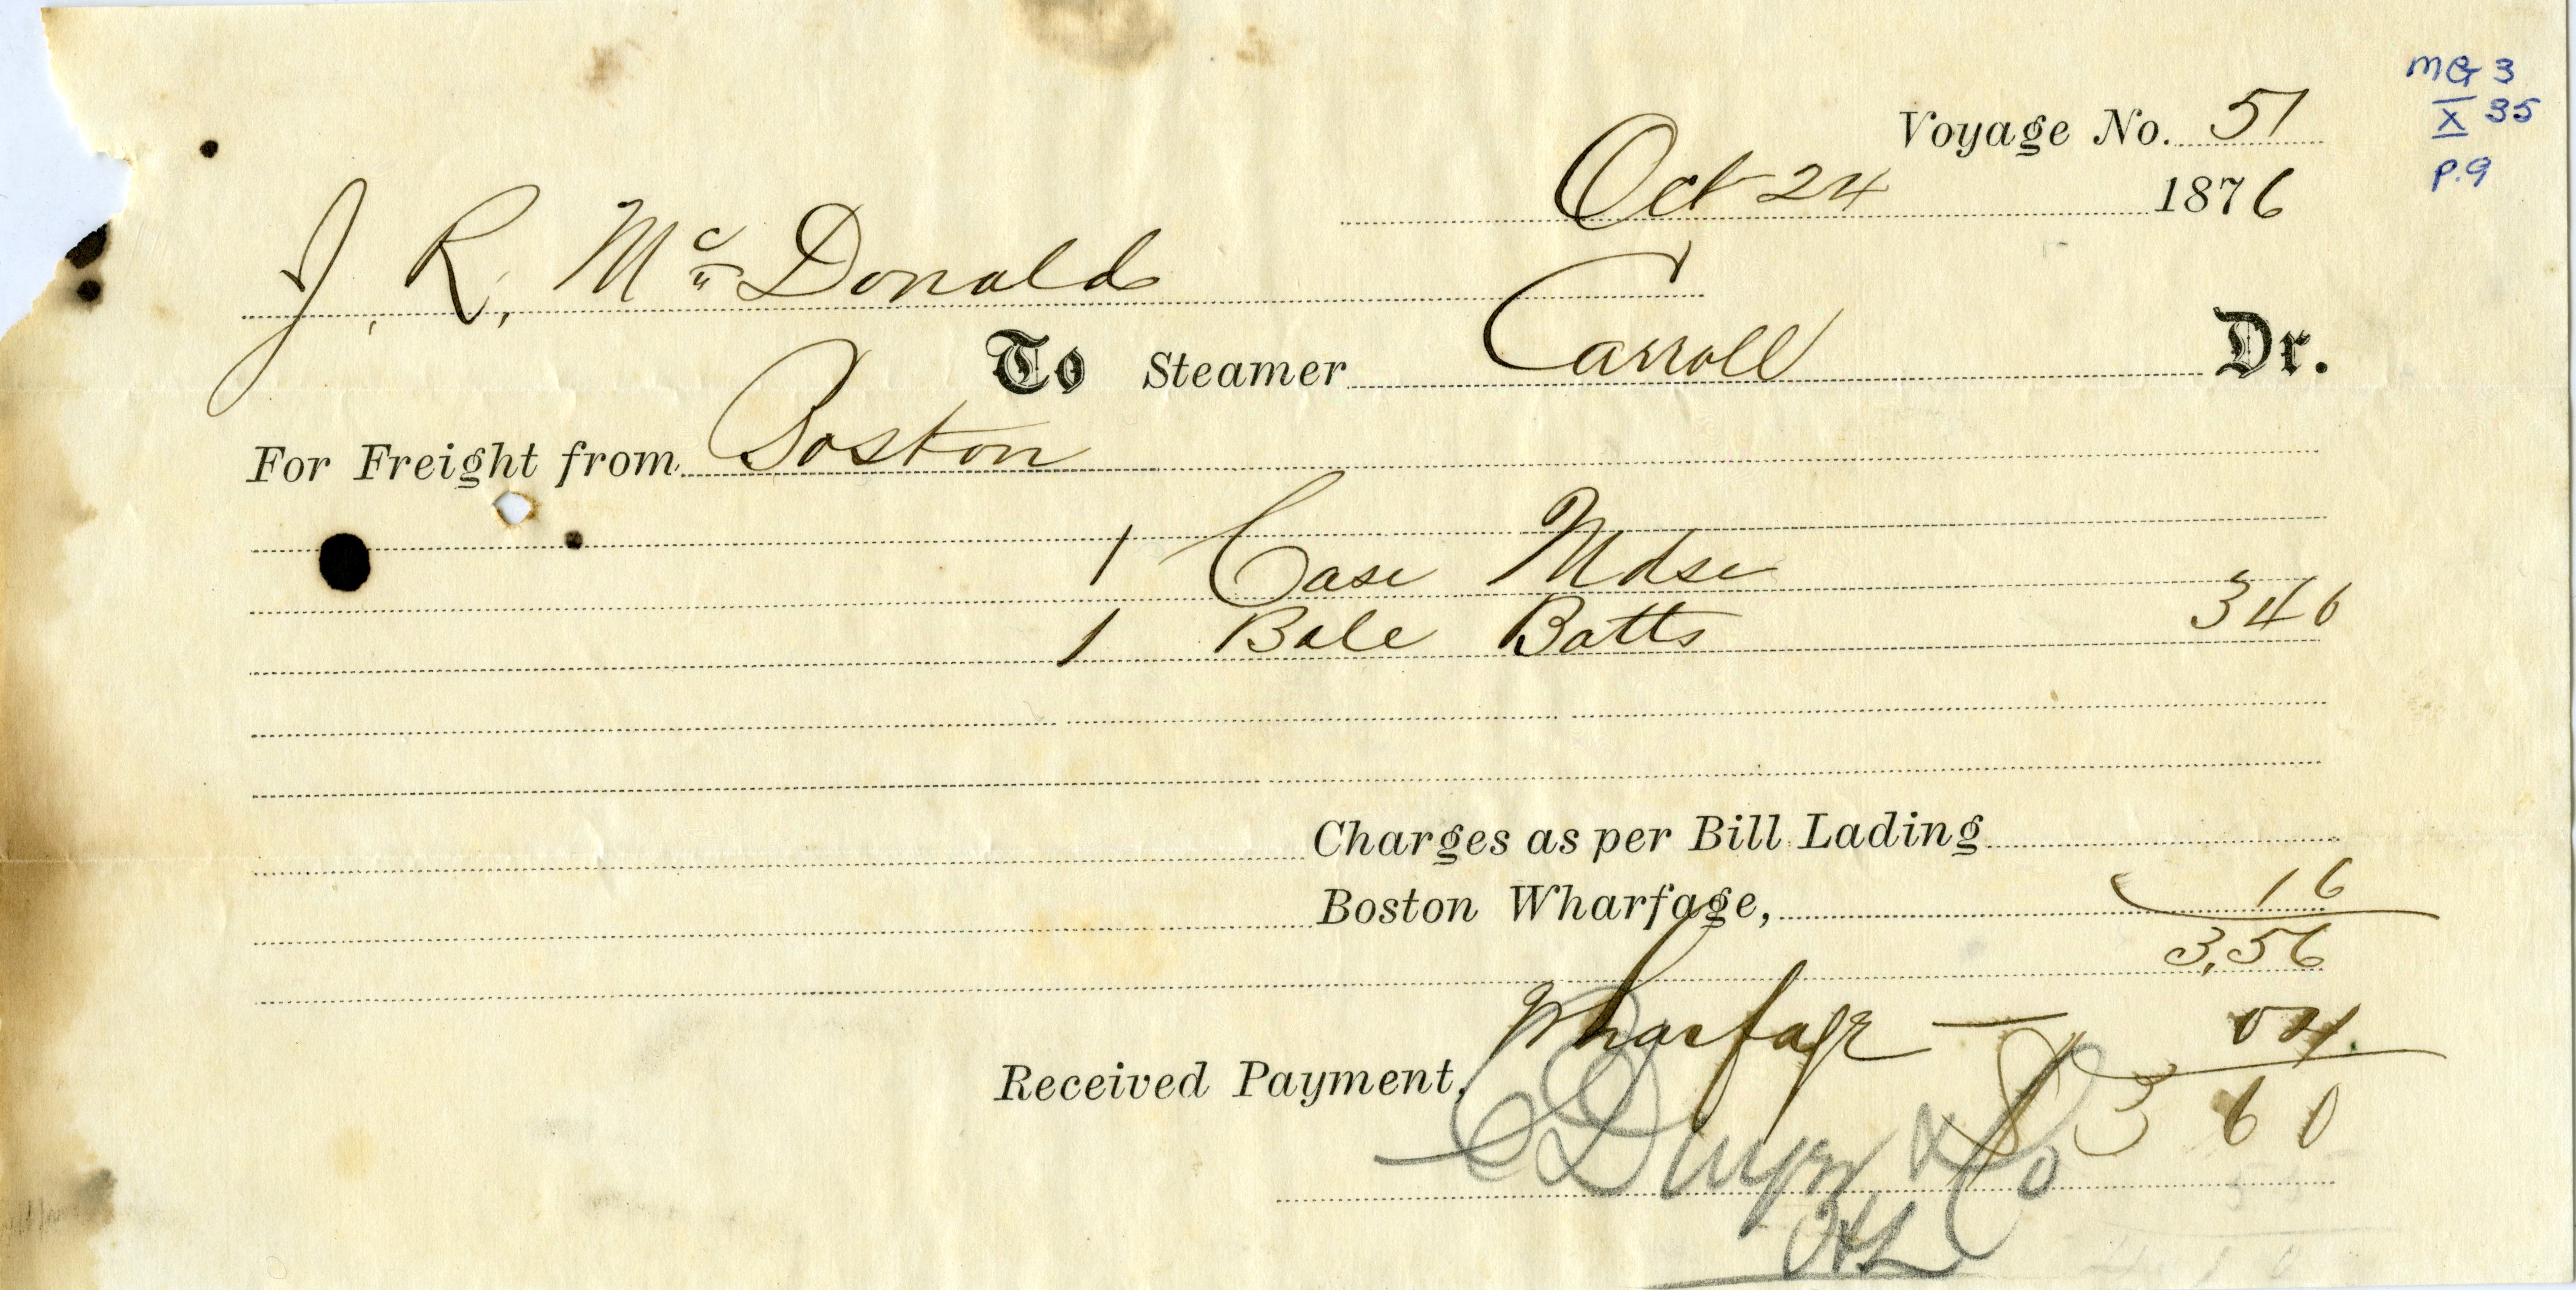 MG 3
X 35
p.9
Voyage No. 51
Oct 24 1876
J. R. McDonald
To Steamer Carroll Dr.
For Freight from Boston
1 Case Mdse
1 Bale Batts 340
Charges as per Bill Lading
Boston Wharfage, 16
3.56
Wharfage — 04
Received Payment,
$3 60
Dwyer & Co